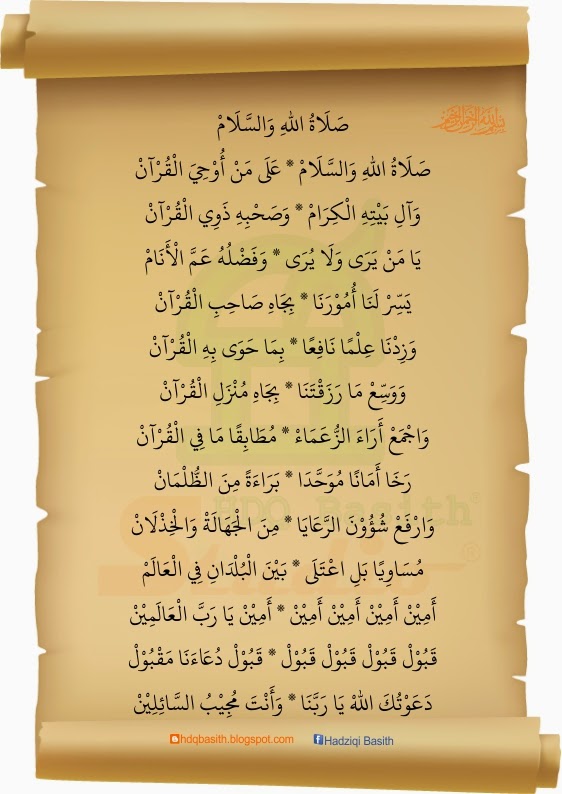 بسم الله الرحمن الرحيم
صَلَاةُ اللهِ وَالسَّلَامْ
صَلَاةُ اللهِ وَالسَّلَامْ * عَلَى مَنْ أُوْحِيَ الْقُرْآنْ
وَآلِ بَيْتِهِ الْكِرَامْ * وَصَحْبِهِ ذَوِي الْقُرْآنْ
يَا مَنْ يَرَى وَلَا يُرَى * وَفَضْلُهُ عَمَّ الْأَنَامْ
يَسِّرْ لَنَا أُمُوْرَنَا * بِجَاهِ صَاحِبِ الْقُرْآنْ
وَزِدْنَا عِلْمًا نَافِعًا * بِمَا حَوَى بِهِ الْقُرْآنْ
وَوَسِّعْ مَا رَزَقْتَنَا * بِجَاهِ مُنْزَلِ الْقُرْآنْ
وَاجْمَعْ أَرَاءَ الزُّعَمَاءْ * مُطَابِقًا مَا فِي الْقُرْآنْ
رَخَا أَمَانًا مُوَحَّدَا * بَرَاءَةً مِنَ الظُّلْمَانْ
وَارْفَعْ شُؤُوْنَ الرَّعَايَا * مِنَ الْجَهَالَةْ وَالْخِذْلَانْ
مُسَاوِيًا بَلِ اعْتَلَى * بَيْنَ الْبُلْدَانِ فِي الْعَالَمْ
أَمِيْنْ أَمِيْنْ أَمِيْنْ أَمِيْنْ * أَمِيْنْ يَا رَبَّ الْعَالَمِيْنْ
قَبُوْلْ قَبُوْلْ قَبُوْلْ قَبُوْلْ * قَبُوْلْ دُعَاءَنَا مَقْبُوْلْ
دَعَوْتُكَ اللهْ يَا رَبَّنَا * وَأَنْتَ مُجِيْبُ السَّائِلِيْنْ
hdqbasith.blogspot.com Hadziqi Basith